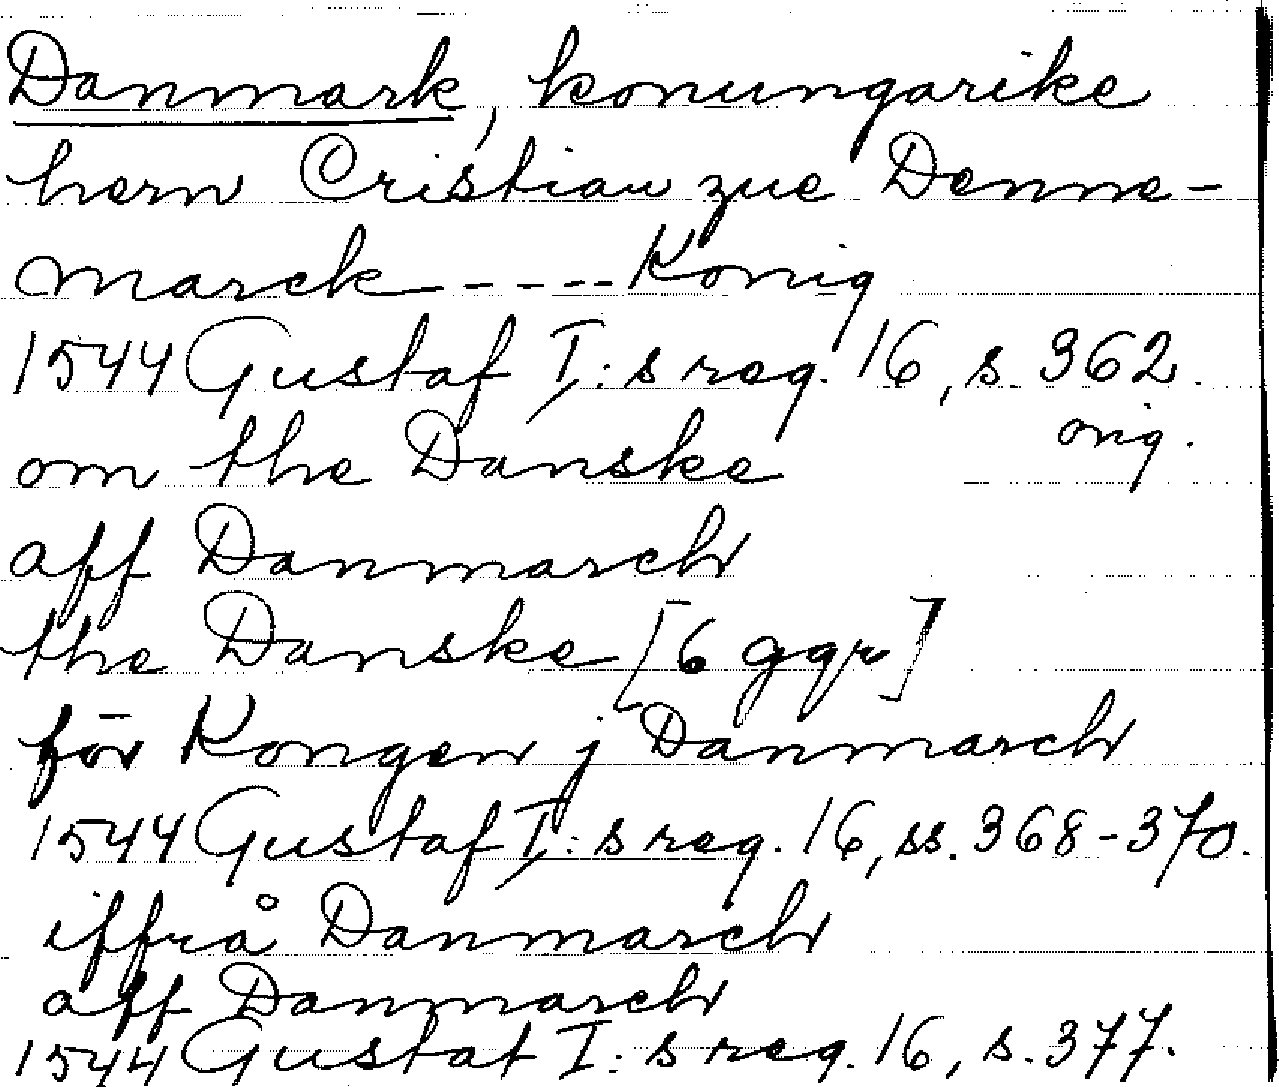 Danmark, konungarike
hern Cristian zue Denne-
marck ---- König
1544 Gustaf I:s reg. 16, s. 362.
orig.
om the Danske
aff Danmarch
the Danske [6 ggr]
för Kongen j Danmarch
1544 Gustaf I:s reg. 16, ss. 368-370.
iffrå Danmarch
aff Danmarch
1544 Gustaf I:s reg. 16, s. 377.